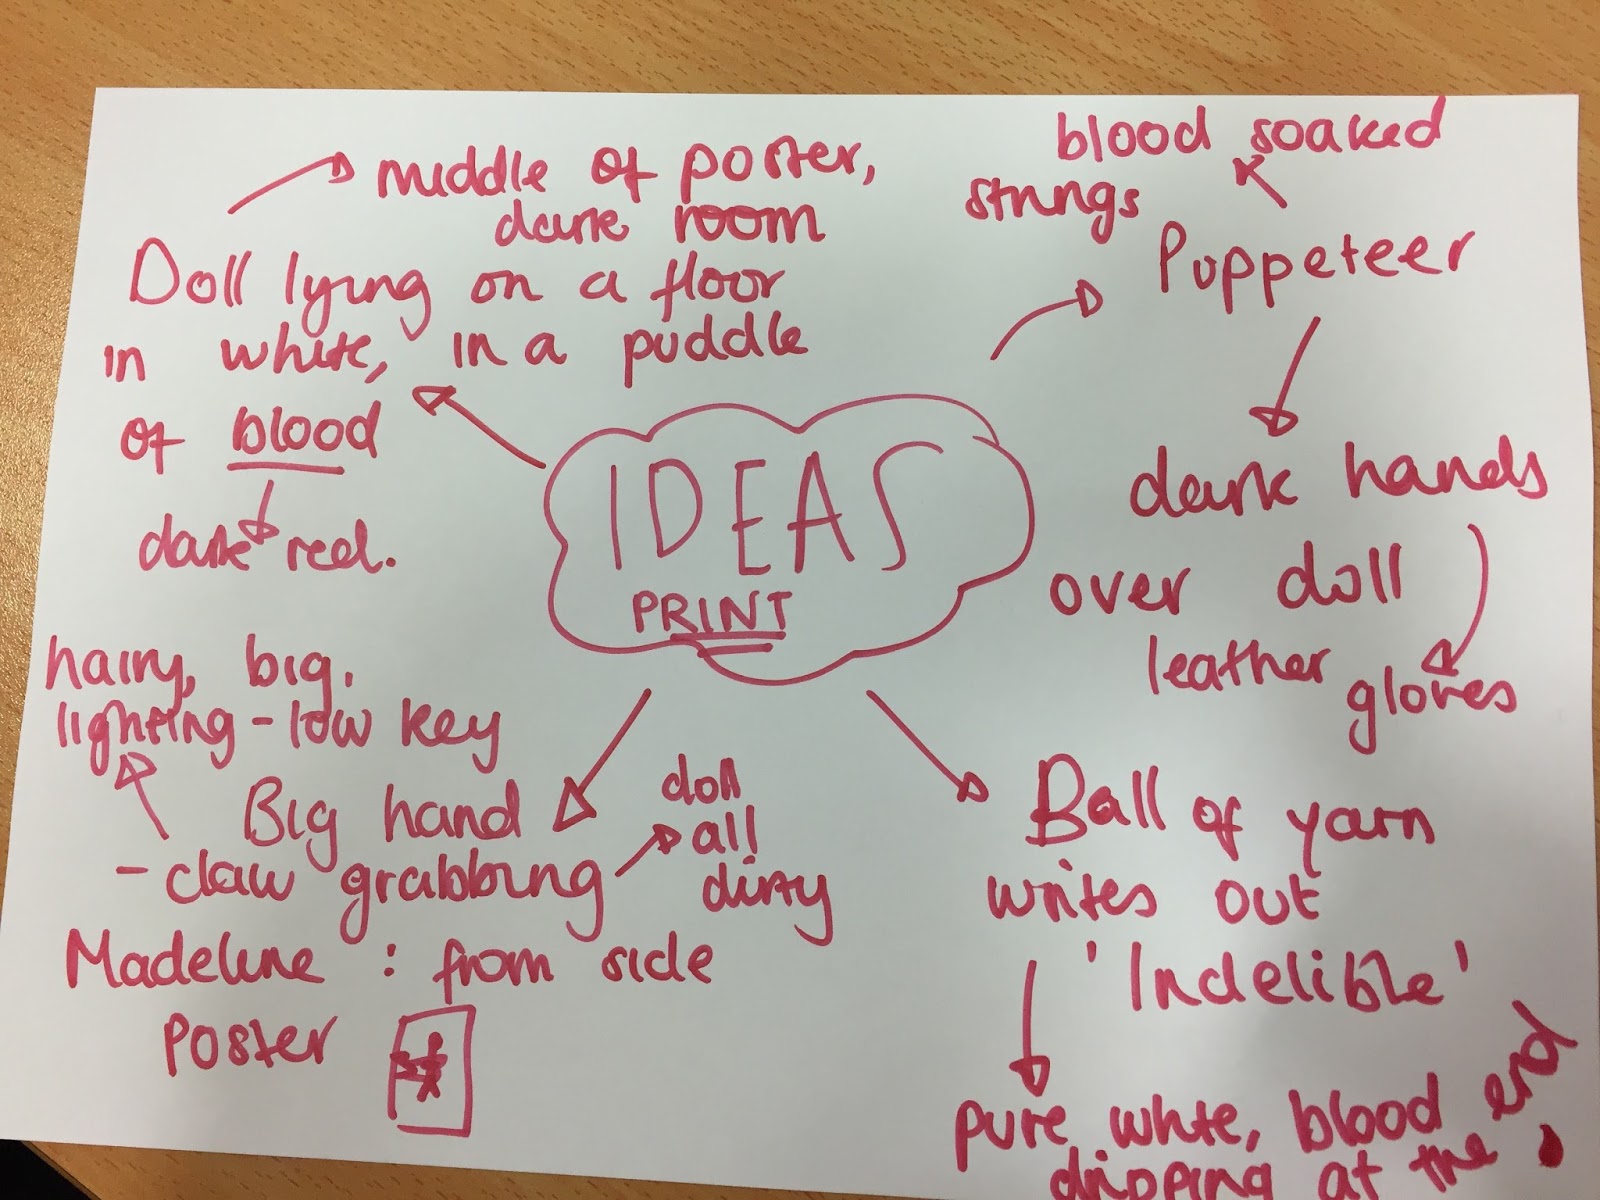 IDEAS
PRINT
middle of poster,
dark room
Doll lying on a floor
in white, in a puddle
of blood
dark red.
blood soaked
strings
Puppeteer
dark hands
over doll
leather gloves
hairy, big.
lighting - low key
Big hand
- claw grabbing
Madeline : from side
poster
doll
all
dirty
Ball of yarn
writes out
'Indelible'
pure white, blood
dripping at the end